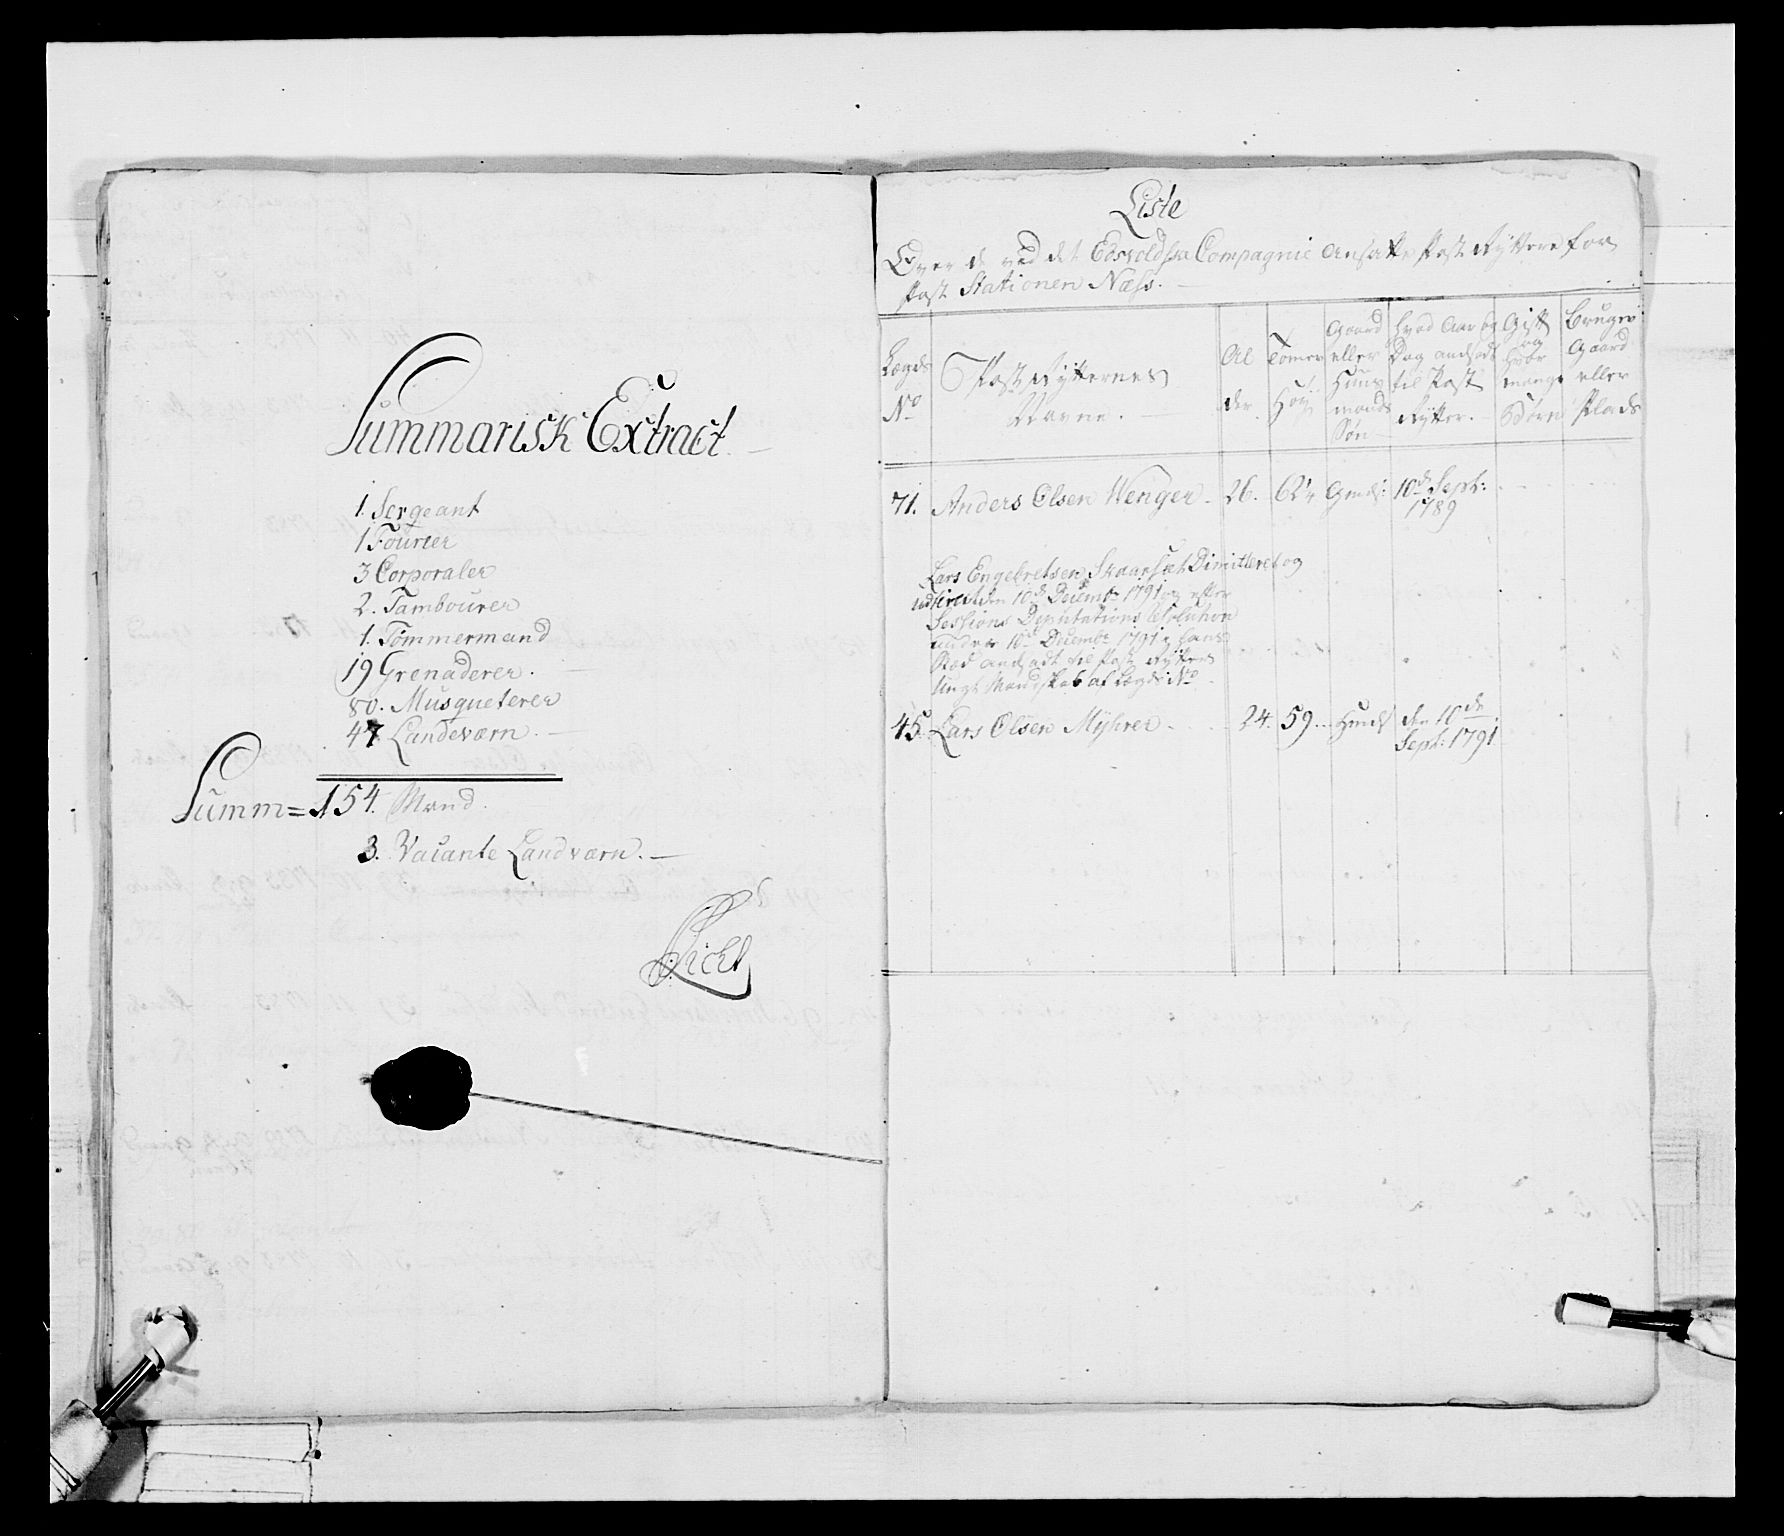 Summarisk Extract.
1. Sergeant
1 Fourier
3 Corporaler
2. Tambourer
1. Tømmermand
19 Grenaderer.
80. Musqueterer
47 Landeværn.
Summ = 154. Mand.
3. Vacante Landværn.
Liste
Over de ved det Edsvoldske Compagnie Ansatte Post Ryttere for
Post Stationen Næss.
Lægds No
Post Rytternes Navne.
Alder
Tomer Høy
Gaard eller Huus mands Søn
Hvad Aar og Dag andsadt til Post Rytter.
Gift og Hvor mange Børn
Bruger Gaard eller Plads
71. Anders Olsen Wenger 26. 62 1/4 Gmds: 10de Sept: 1789
Lars Engebretsen Skaarset Dimitteret og
udskreven den 10de Decembr 1791 og efter
Sessions Deputations Resolution
under 10de Decembr 1791 i hans
Sted andsadt til Post Rytter
Ungt Mandskab af Lægds No
45. Lars Olsen Myhrer 24. 59. Hmds den 10de Sept: 1791